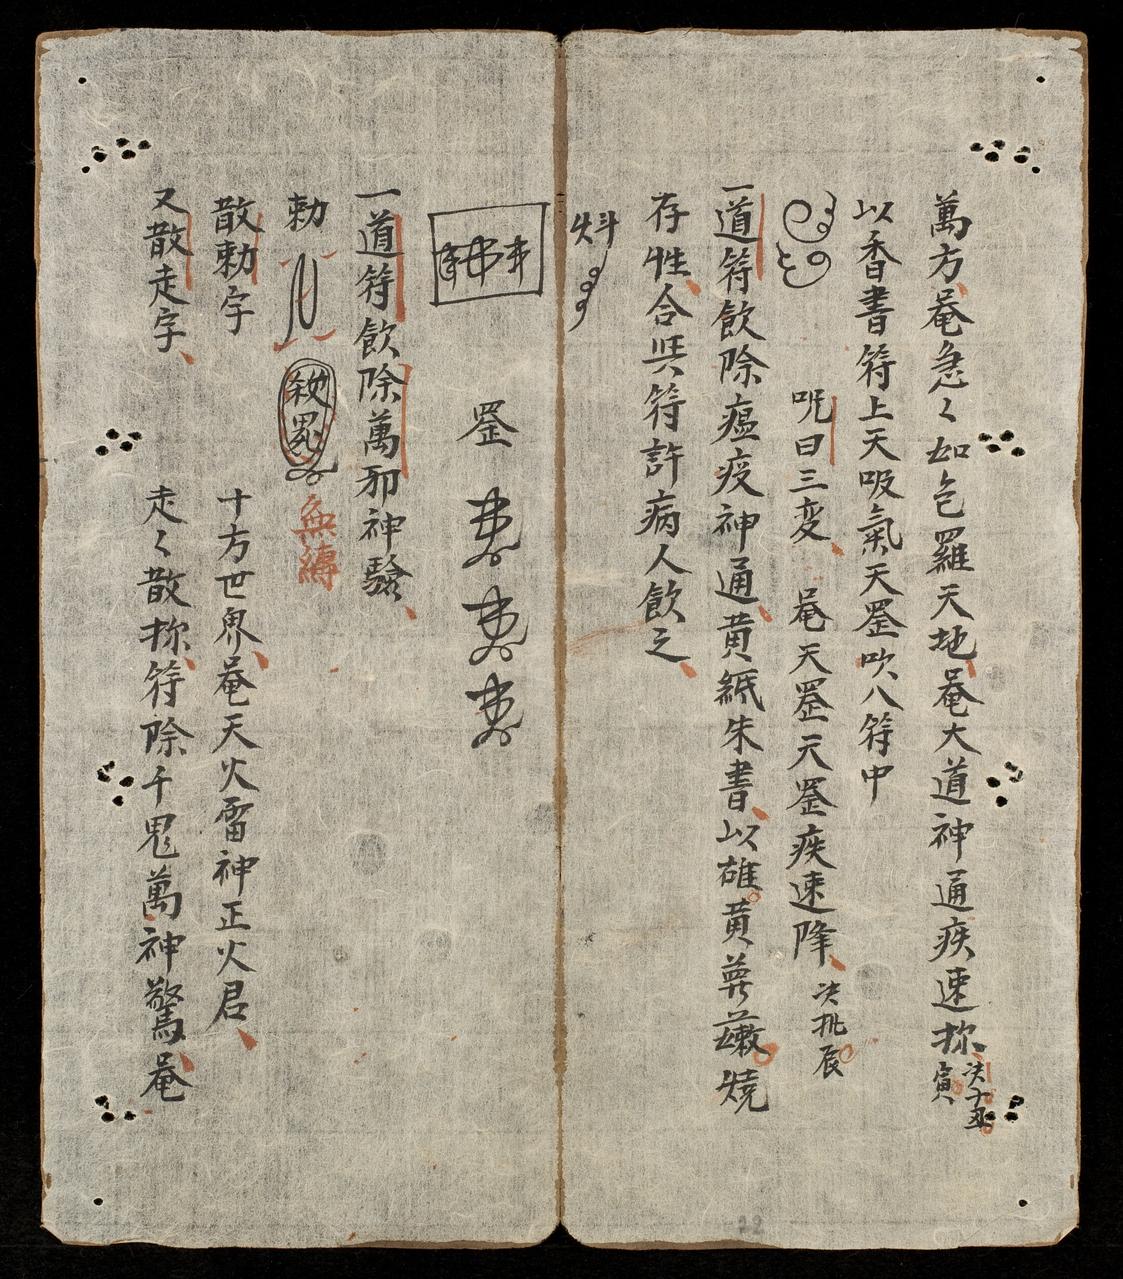 萬方菴急々如包羅天地菴大道神通疾速捺决子丑寅
以香書符上天吸氣天罡吹八符中
呪曰三変菴天罡天罡疾速降决抋辰
一道符飲除瘟疫神通黄紙朱書以雄黄䓍蔌燒
存性合呉符許病人飲之
罡
一道符飲除萬邪神驗
勅
無縛
散勅字 十方世界菴天火雷神正火君
又散走字 走々散捺符除千鬼萬神驚菴